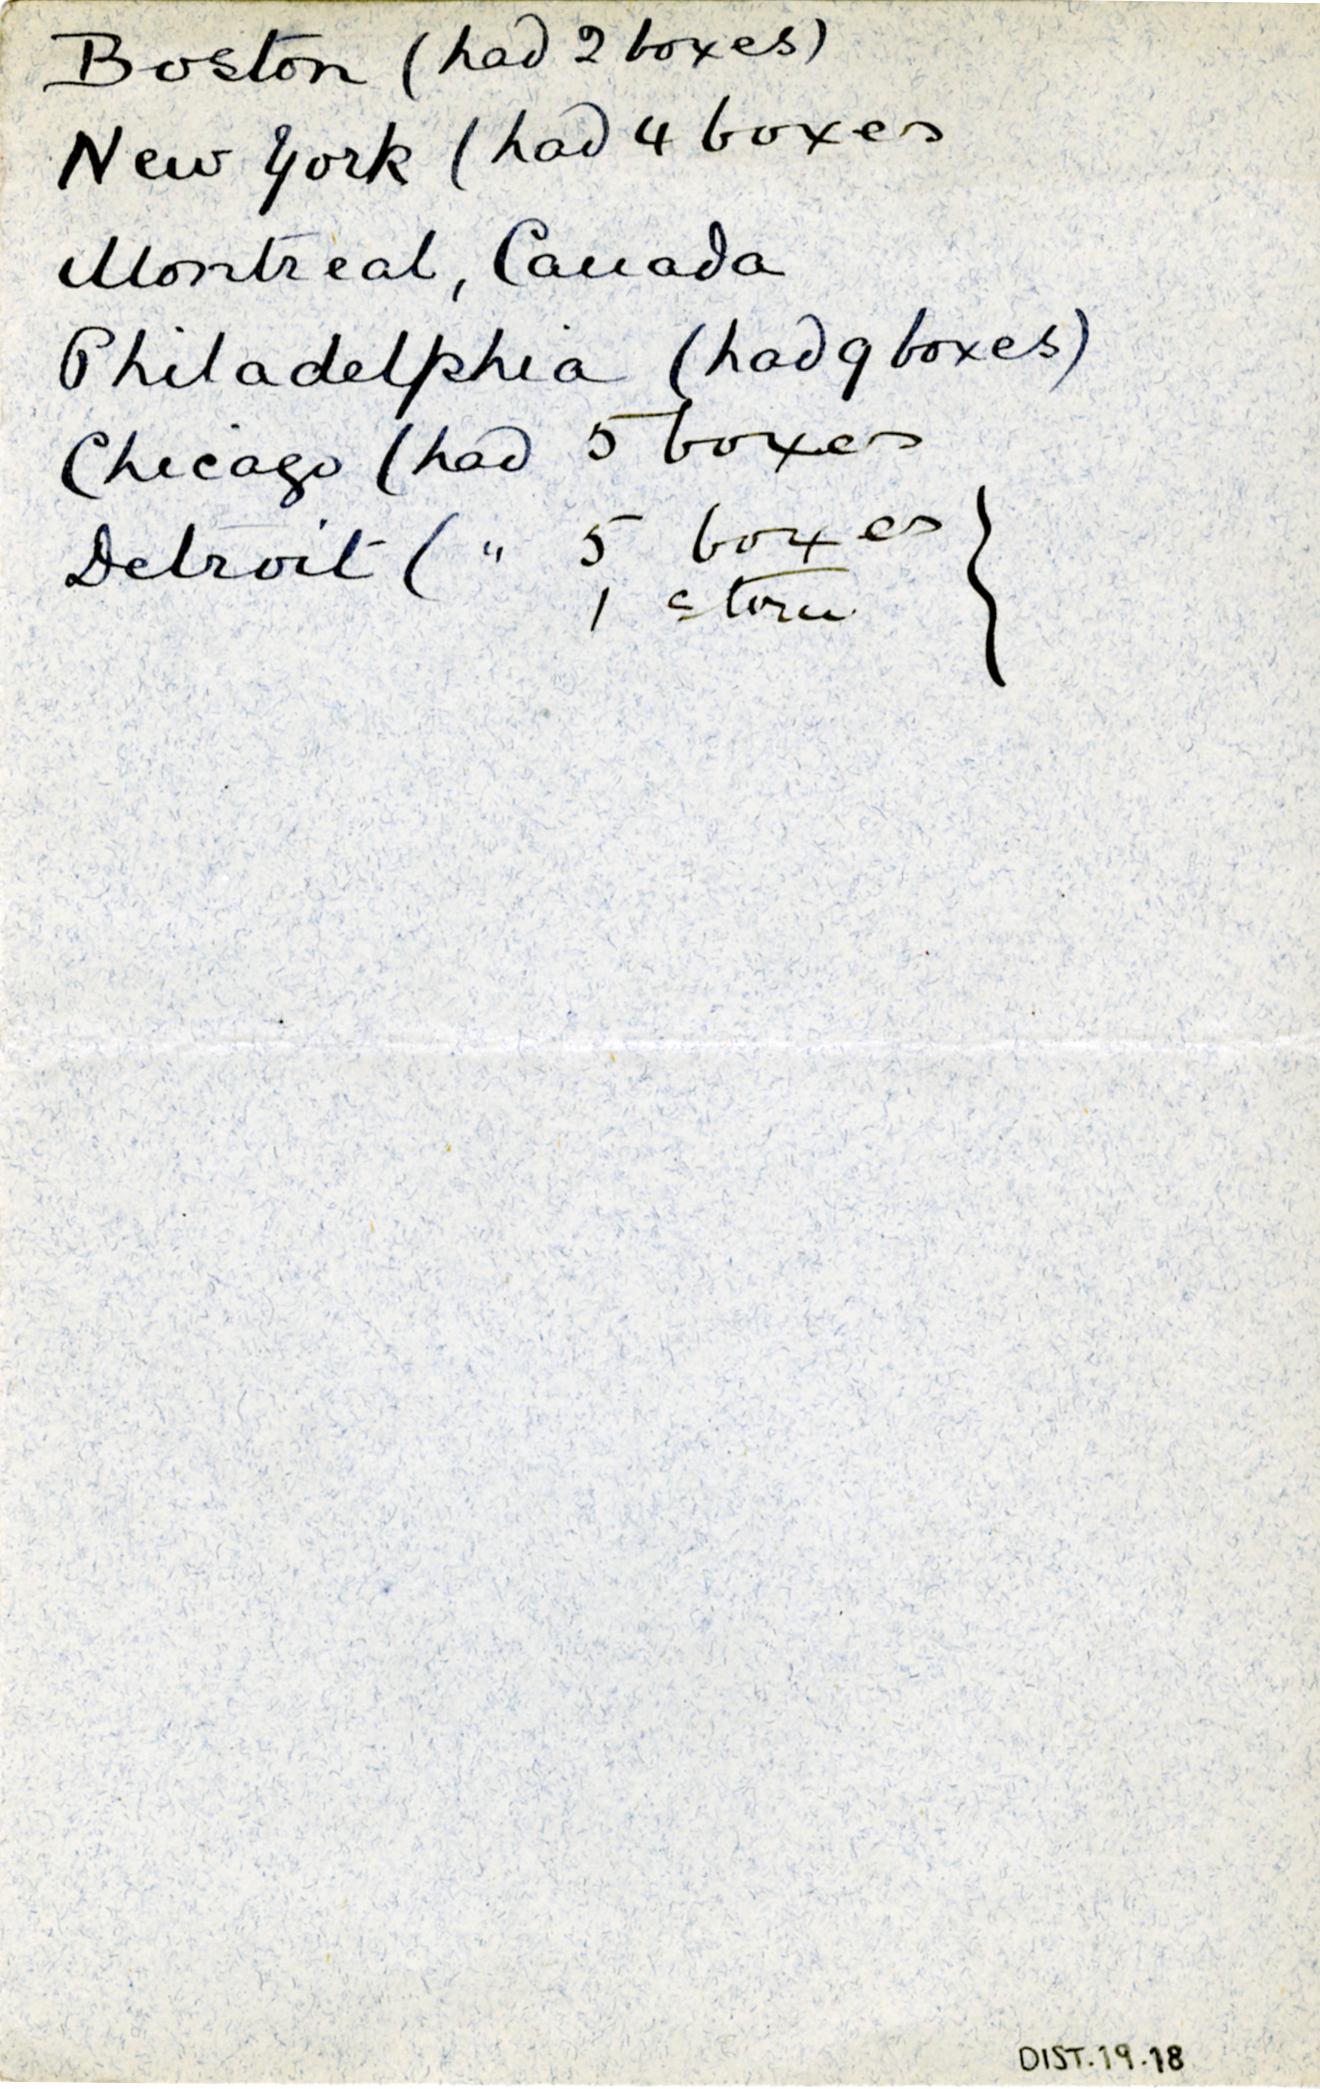 Boston (had 2 boxes)
New York (had 4 boxes
Montreal, Canada
Philadelphia (had 9 boxes)
Chicago (had 5 boxes
Detroit ( " 5 boxes }
1
DIST.19.18